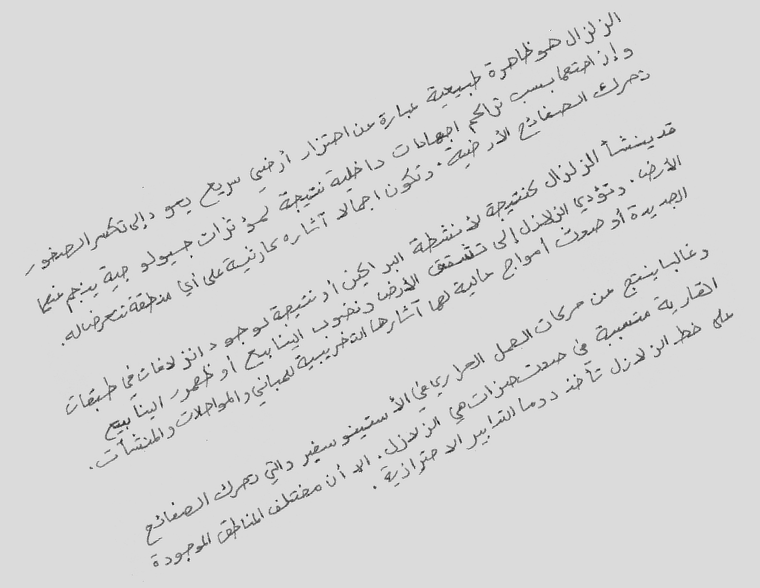 الزلزال هو ظاهرة طبيعية عبارة عن اهتزاز أرضي سريع يعود إلى تكسر الصخور
وإزاحتها بسبب تراكم اجهادات داخلية نتيجة لمؤثرات جيولوجية ينجم عنها
تحرك الصفائح الأرضية. وتكون اجمالا آثاره كارثية على أي منطقة تتعرض له.
قد ينشأ الزلزال كنتيجة لأنشطة البراكين أو نتيجة لوجود انزلاقات في طبقات
الأرض. وتؤدي الزلازل إلى تشقق الأرض ونضوب الينابيع أو ظهور الينابيع
الجديدة أو حدوث أمواج عالية لها آثارها التخريبية للمباني والمواصلات والمنشآت.
وغالبا ينتج عن حركات الحمل الحراري في الأستينوسفير والتي تحرك الصفائح
القارية متسببة في حدوث هزات هي الزلازل. الا أن مختلف المناطق الموجودة
على خط الزلازل تأخذ دوما التدابير الاحترازية.